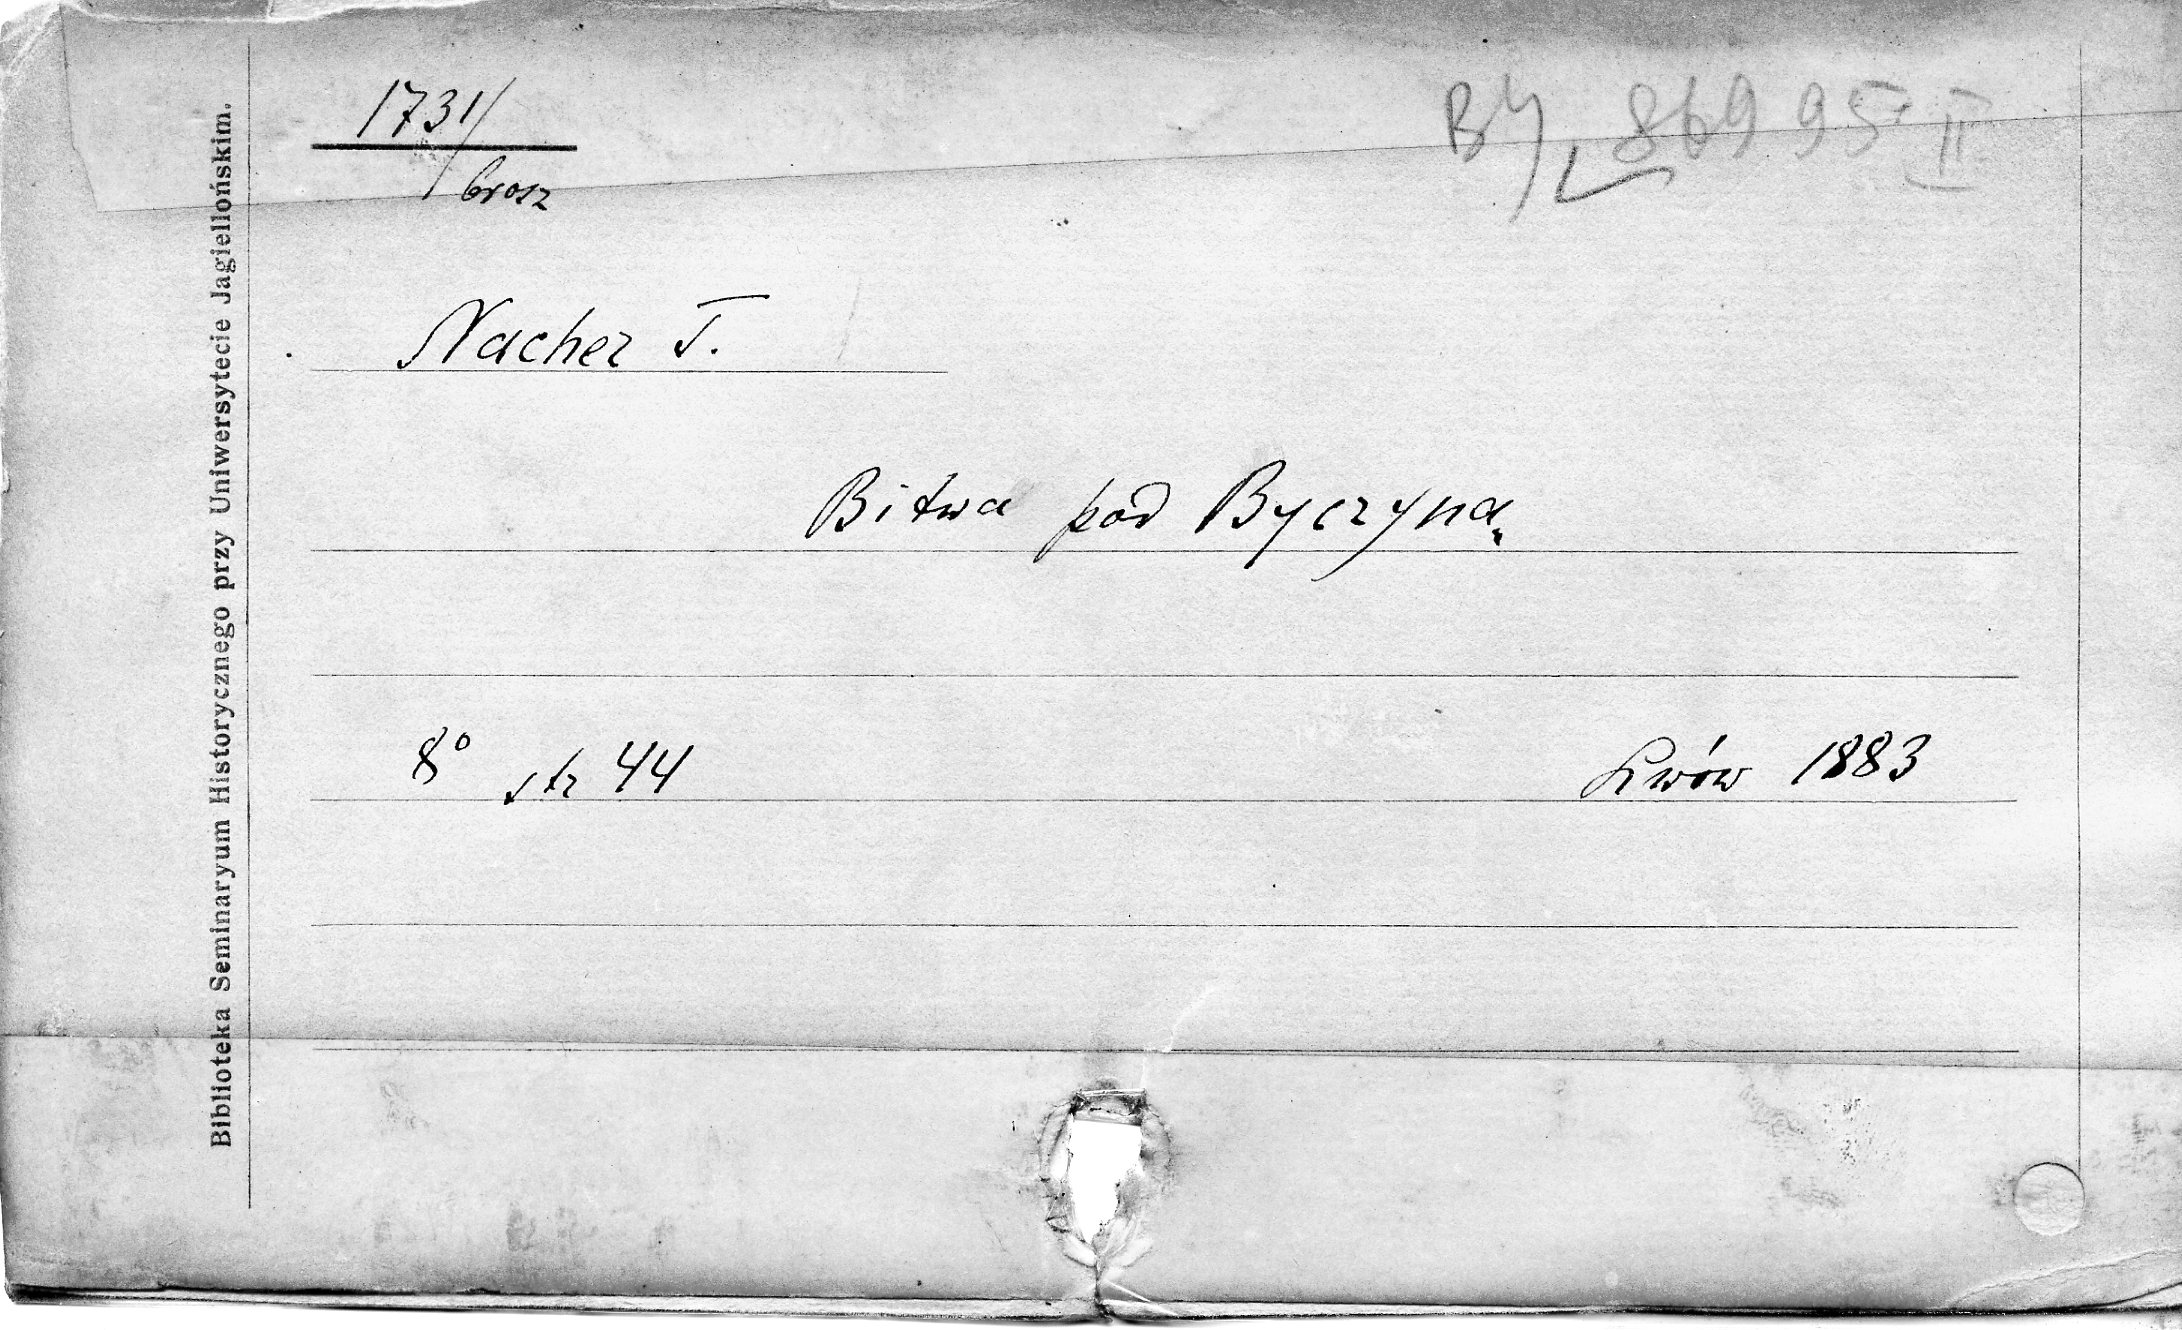 1731/
brosz
BJ 86995 II
Nacher T.
Bitwa pod Byczyną
8° str 44
Lwów 1883
Biblioteka Seminaryum Historycznego przy Uniwersytecie Jagiellońskim.